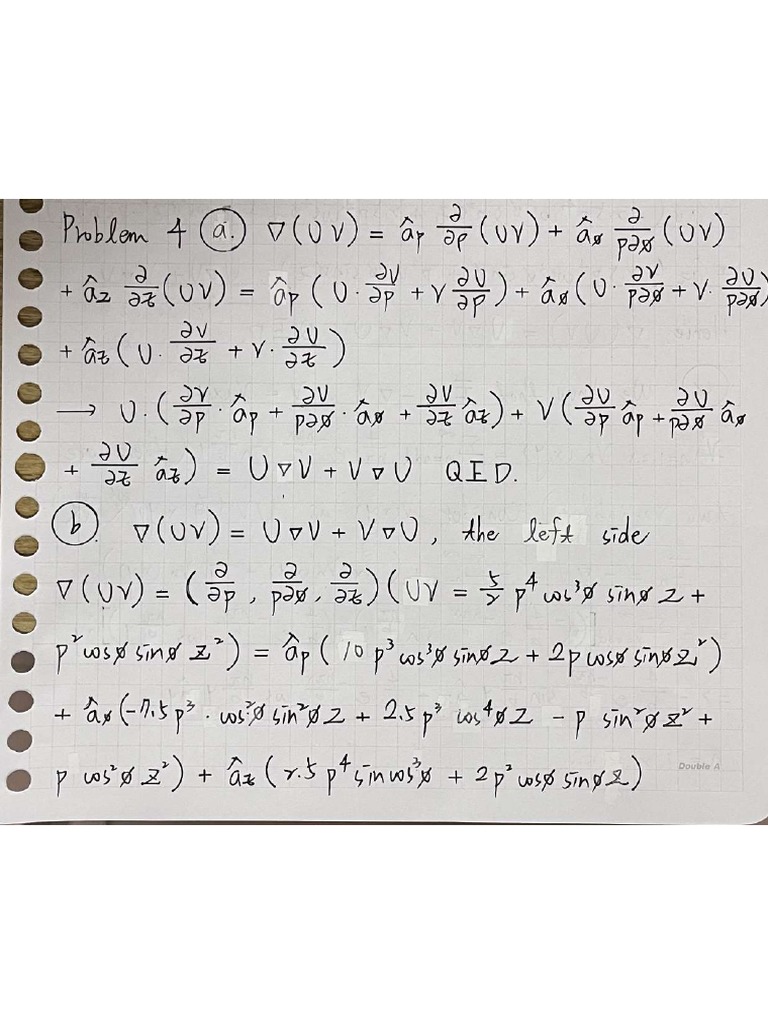 Problem 4 (a.) ∇(UV) = âₚ ∂/∂p (UV) + âø ∂/p∂ø (UV)
+ â𝓏 ∂/∂z (UV) = âₚ (U·∂V/∂p + V ∂U/∂p) + âø (U·∂V/p∂ø + V·∂U/p∂ø)
+ â𝓏 (U·∂V/∂z + V·∂U/∂z)
→ U·(∂V/∂p·âₚ + ∂V/p∂ø·âø + ∂V/∂z â𝓏) + V(∂U/∂p âₚ + ∂U/p∂ø âø
+ ∂U/∂z â𝓏) = U∇V + V∇U QED.
(b) ∇(UV) = U∇V + V∇U, the left side
∇(UV) = (∂/∂p, ∂/p∂ø, ∂/∂z)(UV = 5/2 p⁴cos³ø sinø z +
p²cosø sinø z²) = âₚ (10p³cos³ø sinø z + 2p cosø sinø z²)
+ âø (-7.5p³·cos²ø sin²ø z + 2.5p³ cos⁴ø z - p sin²ø z² +
p cos²ø z²) + â𝓏 (2.5p⁴ sincos³ø + 2p²cosø sinø z)
Double A